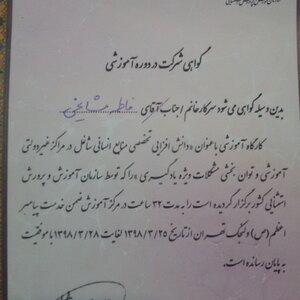 گواهی شرکت در دوره آموزشی
بدین وسیله گواهی می شود سرکار خانم / جناب آقای فاطمه مشایخی
کارگاه آموزشی با عنوان «دانش افزایی تخصصی منابع انسانی شاغل در مراکز غیردولتی
آموزشی و توان بخشی مشکلات ویژه یادگیری» را که توسط سازمان آموزش و پرورش
استثنایی کشور برگزار گردیده است را به مدت ۳۲ ساعت در مرکز آموزش ضمن خدمت پیامبر
اعظم (ص) ولنجک تهران از تاریخ ۱۳۹۸/۳/۲۵ لغایت ۱۳۹۸/۳/۲۸ با موفقیت
به پایان رسانده است.